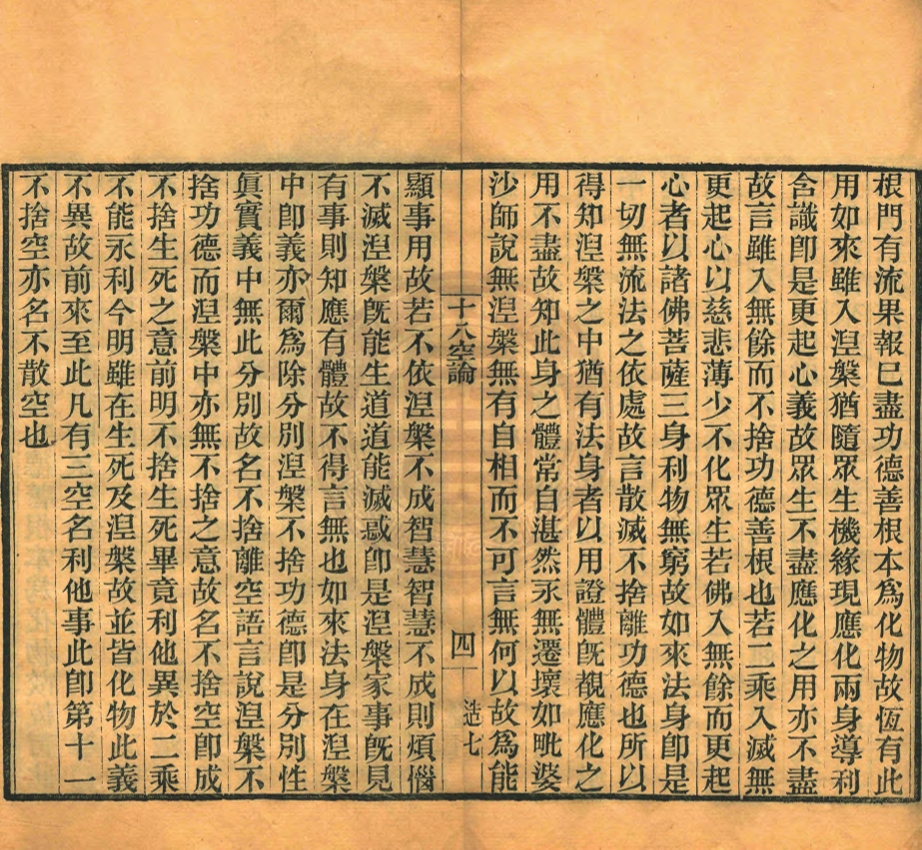 根門有流果報巳盡功德善根本爲化物故恆有此
用如來雖入涅槃猶隨眾生機緣現應化兩身導利
含識卽是更起心義故眾生不盡應化之用亦不盡
故言雖入無餘而不捨功德善根也若二乘入滅無
更起心以慈悲薄少不化眾生若佛入無餘而更起
心者以諸佛菩薩三身利物無窮故如來法身卽是
一切無流法之依處故言散滅不捨離功德也所以
得知涅槃之中猶有法身者以用證體旣覩應化之
用不盡故知此身之體常自湛然永無遷壞如毗婆
沙師說無涅槃無有自相而不可言無何以故爲能
十八空論
四
造七
顯事用故若不依涅槃不成智慧智慧不成則煩惱
不滅涅槃旣能生道道能滅惑卽是涅槃家事旣見
有事則知應有體故不得言無也如來法身在涅槃
中卽義亦爾爲除分別涅槃不捨功德卽是分別性
眞實義中無此分別故名不捨離空語言說涅槃不
捨功德而涅槃中亦無不捨之意故名不捨空卽成
不捨生死之意前明不捨生死畢竟利他異於二乘
不能永利今明雖在生死及涅槃故並皆化物此義
不異故前來至此凡有三空名利他事此卽第十一
不捨空亦名不散空也